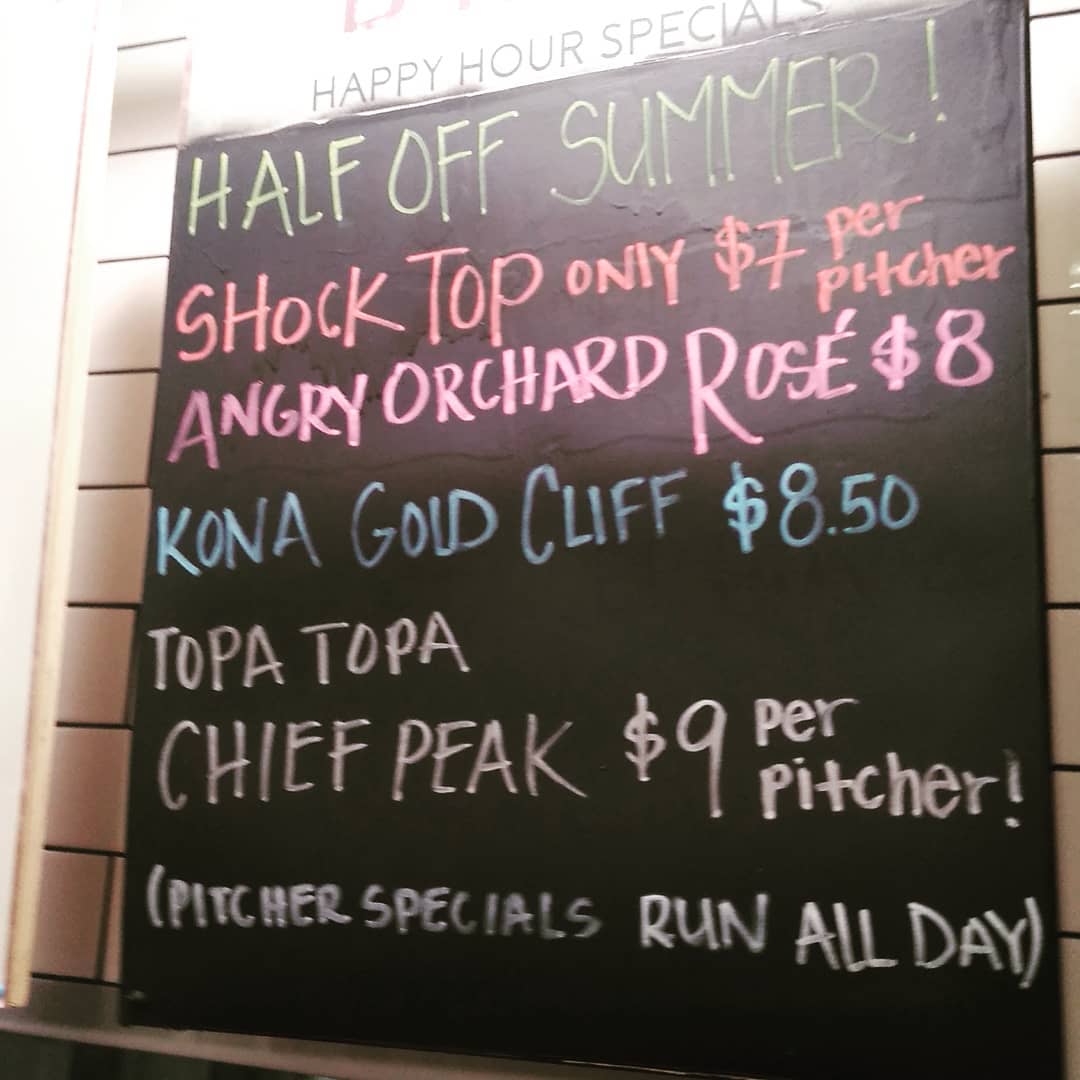 HAPPY HOUR SPECIALS
HALF OFF SUMMER!
SHOCK TOP ONLY $7 per pitcher
ANGRY ORCHARD ROSÉ $8
KONA GOLD CLIFF $8.50
TOPA TOPA
CHIEF PEAK $9 per pitcher!
(PITCHER SPECIALS RUN ALL DAY)